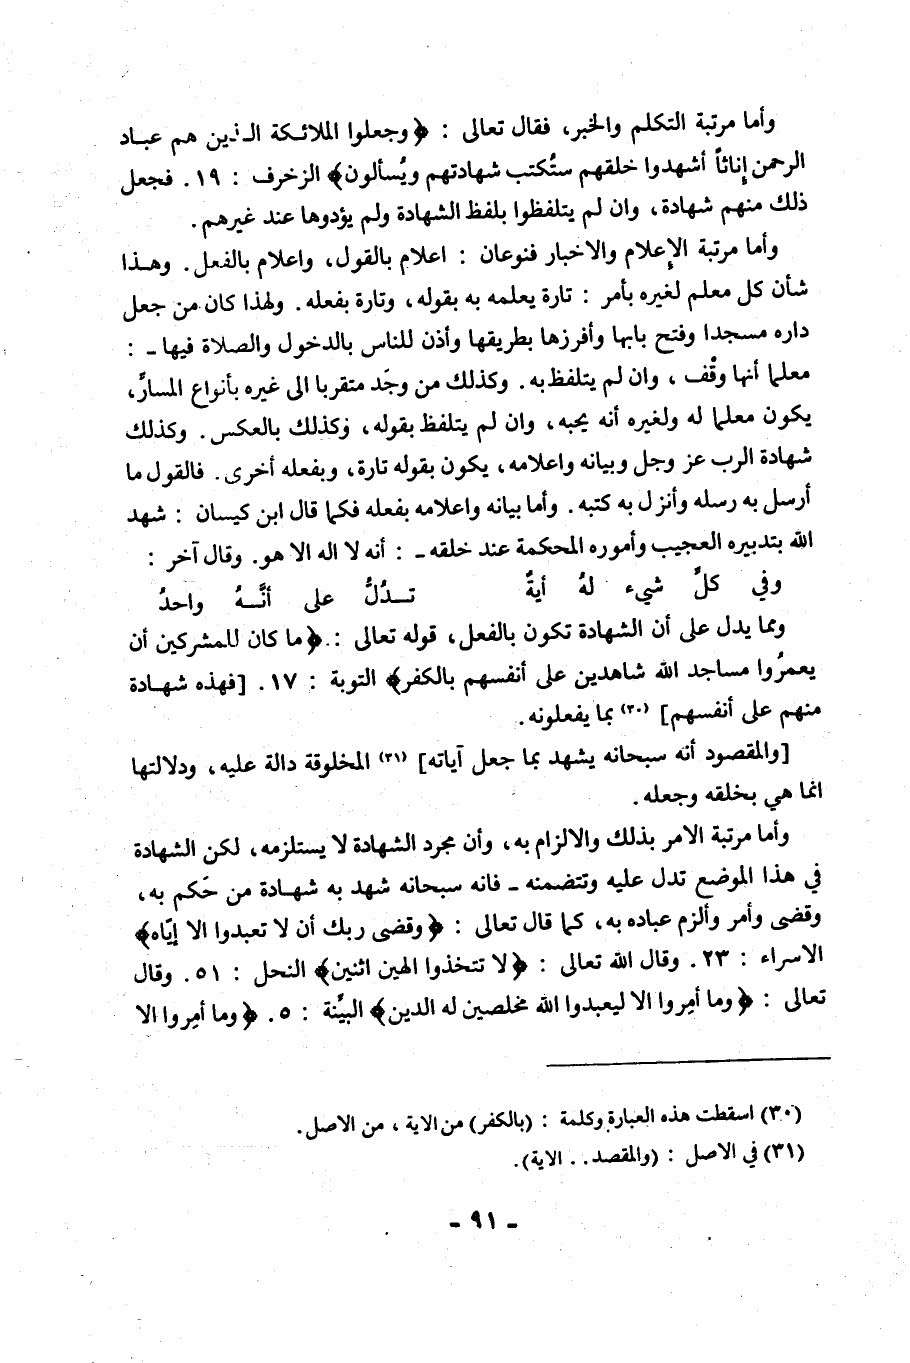 وأما مرتبة التكلم والخبر، فقال تعالى : ﴿وجعلوا الملائكة الذين هم عباد
الرحمن إناثاً أشهدوا خلقهم ستُكتب شهادتهم ويُسألون﴾ الزخرف : ١٩. فجعل
ذلك منهم شهادة، وان لم يتلفظوا بلفظ الشهادة ولم يؤدوها عند غيرهم.
وأما مرتبة الإعلام والاخبار فنوعان : اعلام بالقول، واعلام بالفعل. وهذا
شأن كل معلم لغيره بأمر : تارة يعلمه به بقوله، وتارة بفعله. ولهذا كان من جعل
داره مسجدا وفتح بابها وأفرزها بطريقها وأذن للناس بالدخول والصلاة فيها ـ :
معلما أنها وقْف ، وان لم يتلفظ به. وكذلك من وجَد متقربا الى غيره بأنواع المسارِّ،
يكون معلما له ولغيره أنه يحبه، وان لم يتلفظ بقوله، وكذلك بالعكس. وكذلك
شهادة الرب عز وجل وبيانه واعلامه، يكون بقوله تارة، وبفعله أخرى. فالقول ما
أرسل به رسله وأنزل به كتبه. وأما بيانه واعلامه بفعله فكما قال ابن كيسان : شهد
الله بتدبيره العجيب وأموره المحكمة عند خلقه ـ : أنه لا اله الا هو. وقال آخر :
وفي كلِّ شيء لهُ أيةٌ تــدُلُّ على أنَّــهُ واحدُ
ومما يدل على أن الشهادة تكون بالفعل، قوله تعالى : ﴿ما كان للمشركين أن
يعمرُوا مساجد الله شاهدين على أنفسهم بالكفر﴾ التوبة : ١٧. [فهذه شهادة
منهم على أنفسهم] (٣٠) بما يفعلونه.
[والمقصود أنه سبحانه يشهد بما جعل آياته] (٣١) المخلوقة دالة عليه، ودلالتها
انما هي بخلقه وجعله.
وأما مرتبة الامر بذلك والالزام به، وأن مجرد الشهادة لا يستلزمه، لكن الشهادة
في هذا الموضع تدل عليه وتتضمنه ـ فانه سبحانه شهد به شهادة من حَكم به،
وقضى وأمر وألزم عباده به، كما قال تعالى : ﴿وقضى ربك أن لا تعبدوا الا إيّاه﴾
الاسراء : ٢٣. وقال الله تعالى : ﴿لا تتخذوا الهين اثنين﴾ النحل : ٥١. وقال
تعالى : ﴿وما أمِروا الا ليعبدوا الله مخلصين له الدين﴾ البيَّنة : ٥. ﴿وما أمِروا الا
(٣٠) اسقطت هذه العبارة وكلمة : (بالكفر) من الاية ، من الاصل.
(٣١) في الاصل : (والمقصد. . الاية).
ـ ٩١ ـ